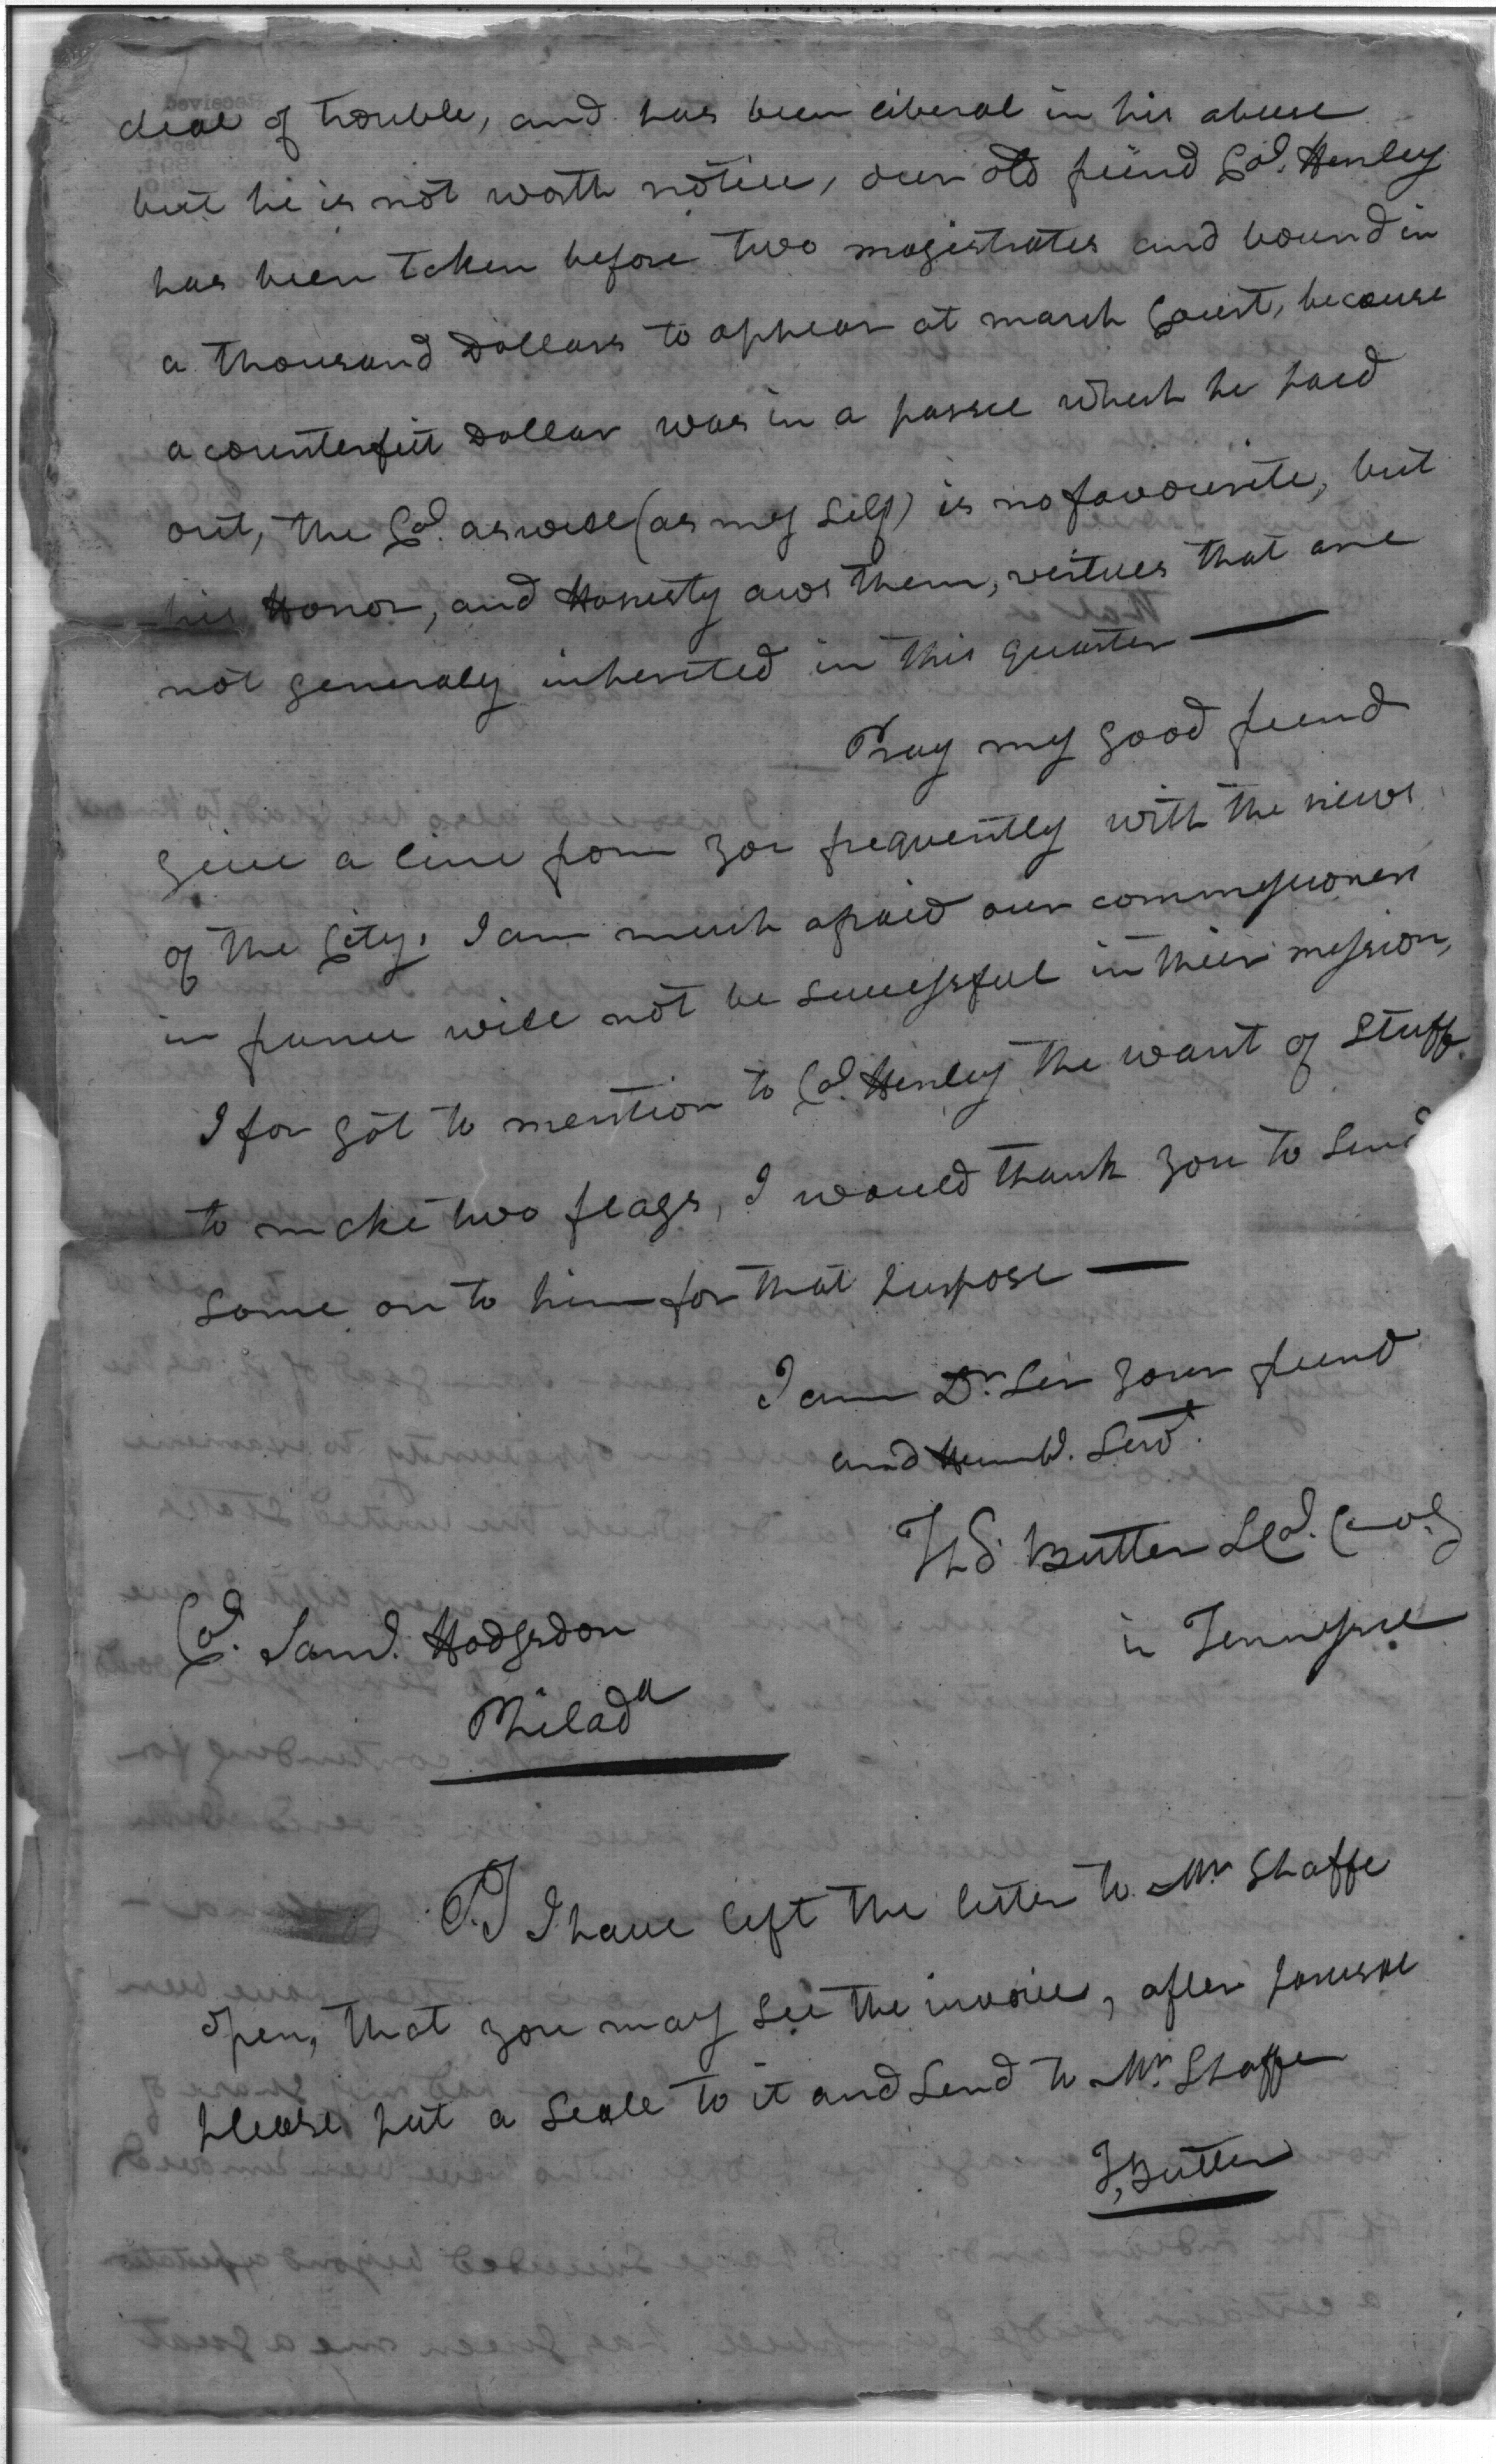 deal of trouble, and has been liberal in his abuse
but he is not worth notice, our old friend Col. Henley
has been taken before two magistrates and bound in
a thousand Dollars to appear at march Court, because
a counterfeit Dollar was in a parsel which he paid
out, the Col. as well (as my self) is no favourite, but
his Honor, and Honesty aws them, virtues that are
not generaly inherited in this quarter —
Pray my good friend
give a line from you frequently with the news
of the City. I am much afraid our commissioners
in france will not be successful in their mission,
I for got to mention to Col. Henley the want of Stuff
to make two flags, I would thank you to send
some on to him for that purpose —
I am Dr. Sir your friend
and Humbl. Servt.
Thos. Butler Lt Col. Comdg
in Tennessee
Col. Saml. Hodgsdon
Philada
PS I have left the letter to Mr Shaffe
open, that you may see the invoice, after perusal
please put a seale to it and send to Mr. Shaffe
T, Butler